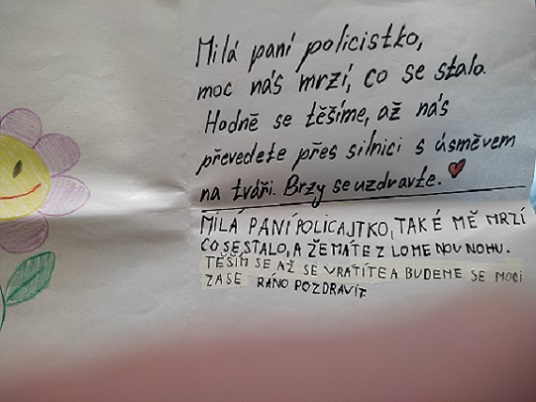 Milá paní policistko,
moc nás mrzí, co se stalo.
Hodně se těšíme, až nás
převedete přes silnici s úsměvem
na tváři. Brzy se uzdravte.
MILÁ PANÍ POLICAJTKO, TAKÉ MĚ MRZÍ
CO SE STALO, A ŽE MÁTE ZLOMENOV NOHU.
TĚŠÍM SE AŽ SE VRATÍTE A BUDEME SE MOCI
ZASE RÁNO POZDRAVIT.